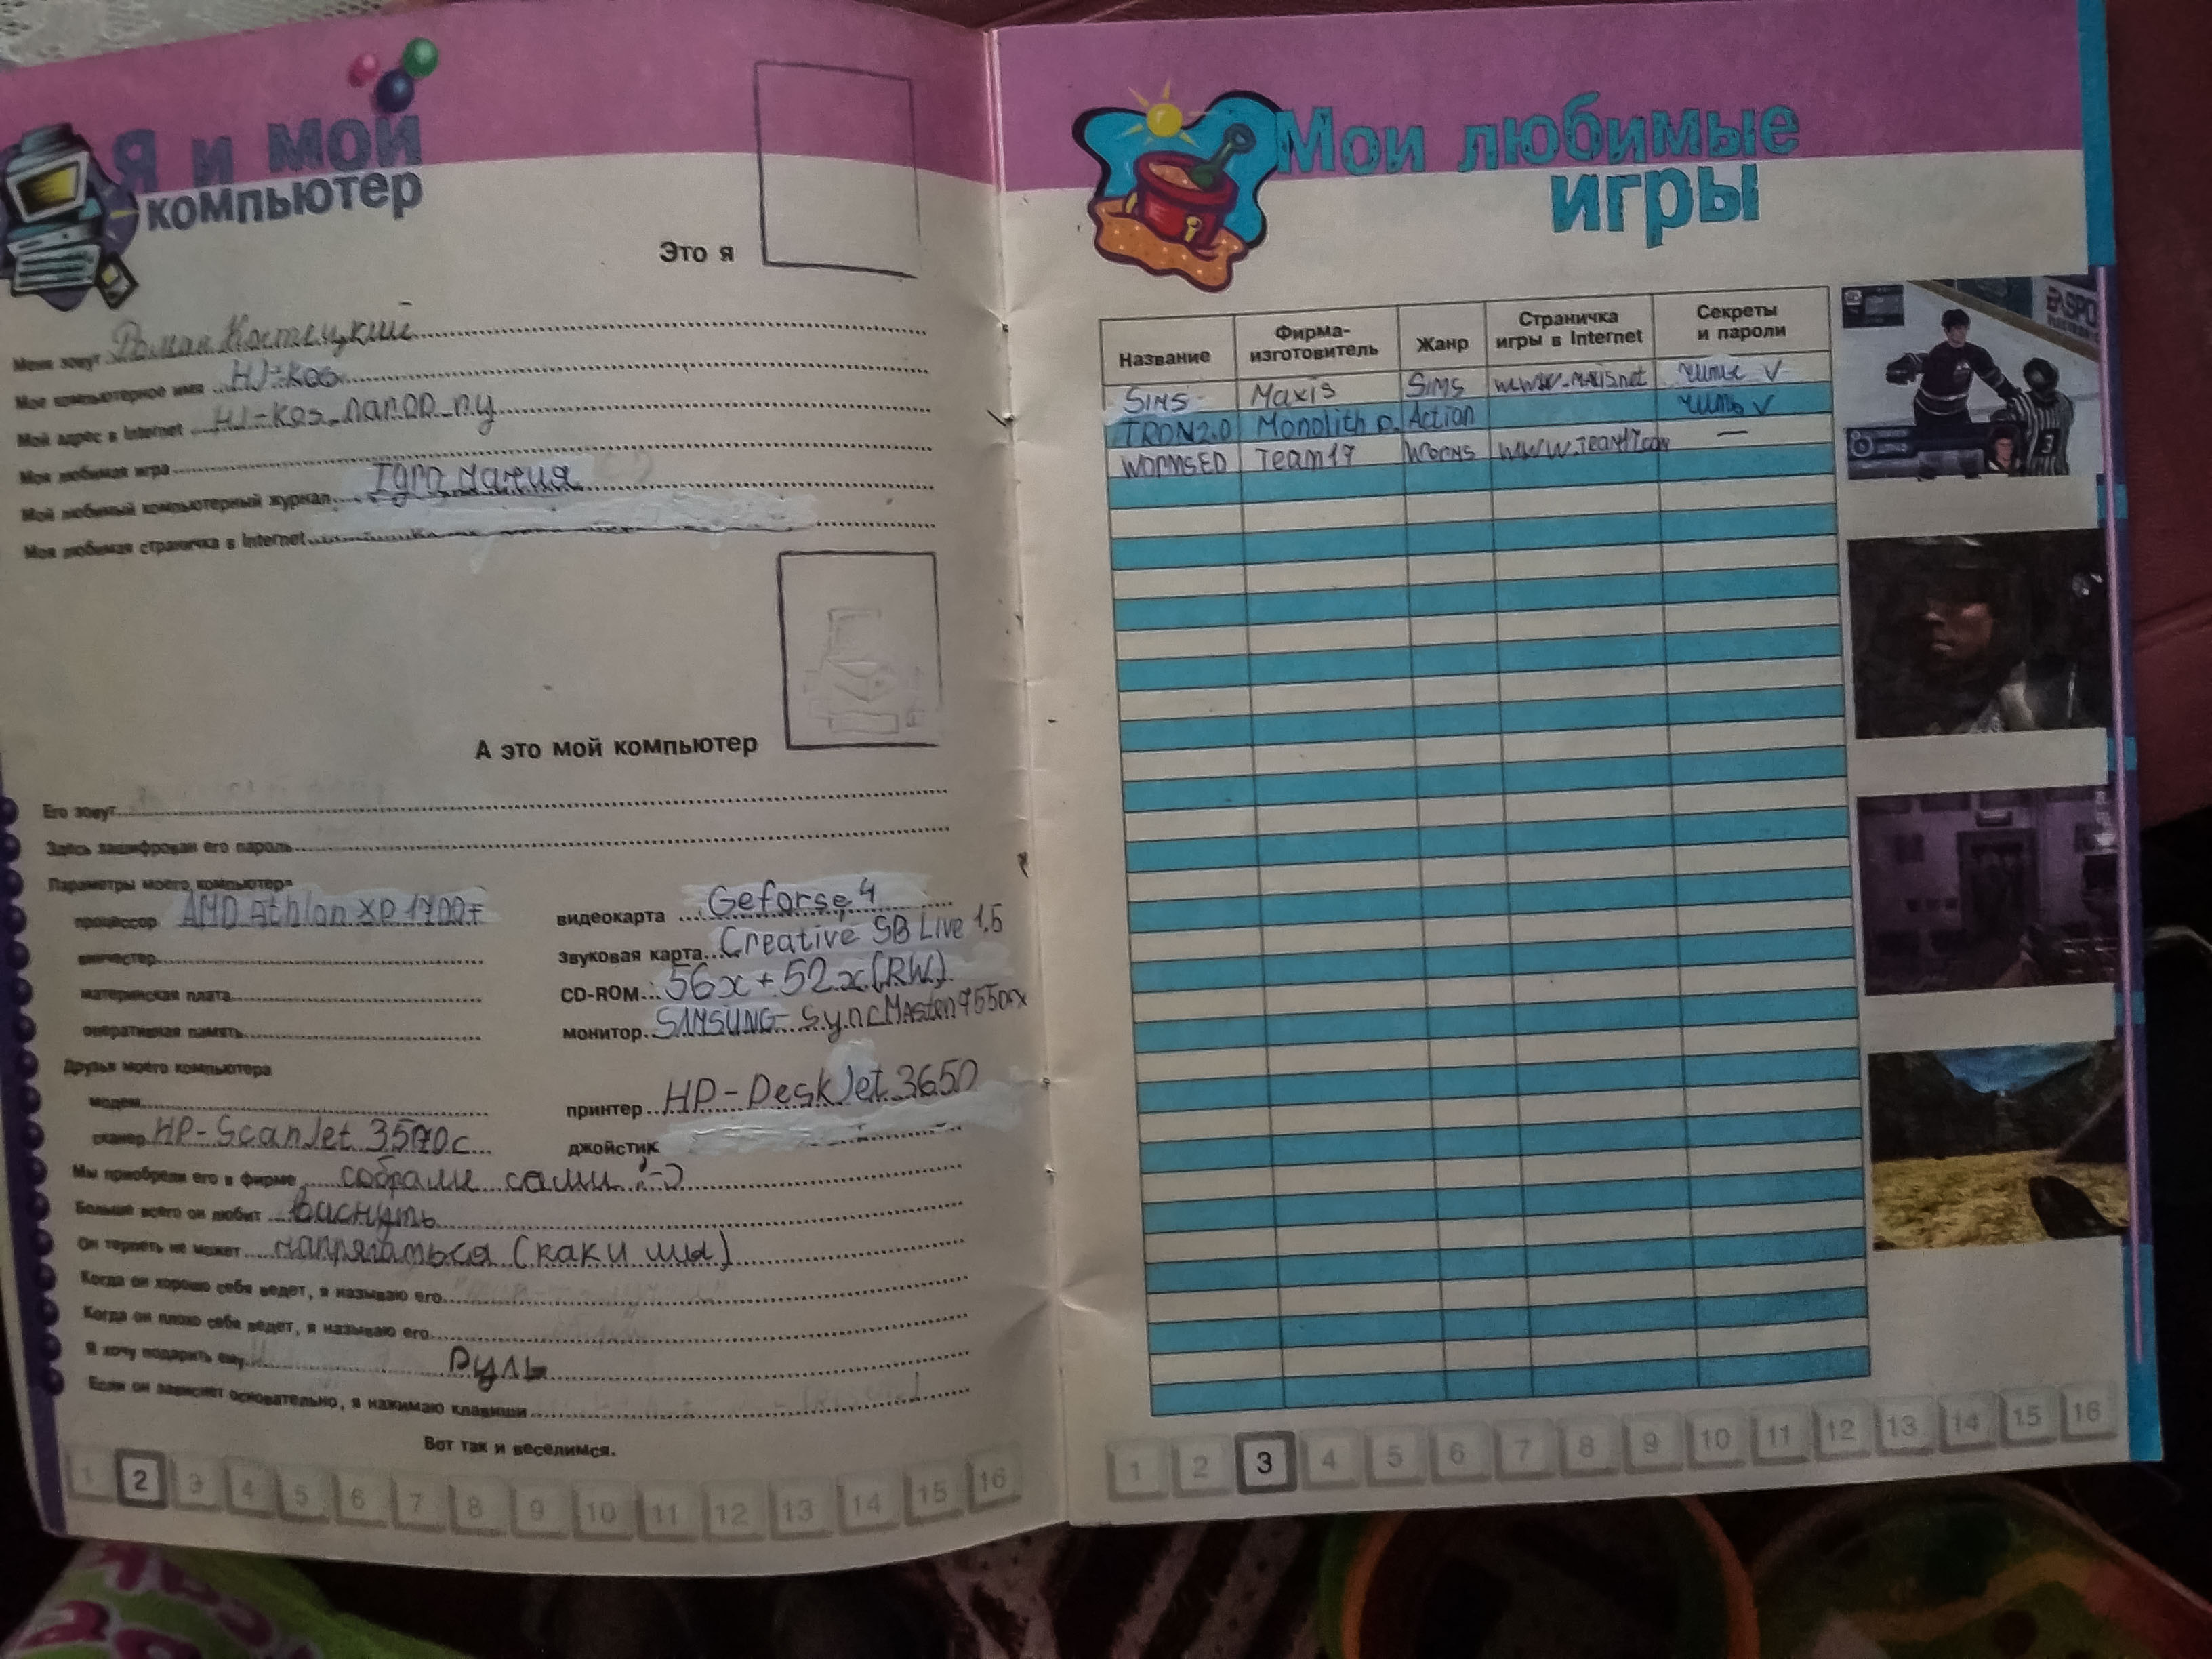 Я и мой
компьютер
Это я
Меня зовут Роман Костецкий
Мое компьютерное имя HJ-Kos
Мой адрес в Internet HJ-Kos_narod_ru
Моя любимая игра
Мой любимый компьютерный журнал Igromания
Моя любимая страничка в Internet
А это мой компьютер
Его зовут
Здесь зашифрован его пароль
Параметры моего компьютера
процессор AMD Athlon XP 1700+
видеокарта Geforse 4
винчестер
звуковая карта Creative SB Live 1,5
материнская плата
CD-ROM 56x+52x(RW)
оперативная память
монитор SAMSUNG SyncMaster
Друзья моего компьютера
модем
принтер HP-DeskJet 3650
сканер HP-ScanJet 3570c
джойстик
Мы приобрели его в фирме собрали сами :-)
Больше всего он любит виснуть
Он терпеть не может напрягаться (как и мы)
Когда он хорошо себя ведет, я называю его
Когда он плохо себя ведет, я называю его
Я хочу подарить ему Руль
Если он зависнет основательно, я нажимаю клавиши
Вот так и веселимся.
1 2 3 4 5 6 7 8 9 10 11 12 13 14 15 16
Мои любимые
игры
Название Фирма-изготовитель Жанр Страничка игры в Internet Секреты и пароли
SIMS Maxis SIMS www.MAXIS.net читы V
TRON2.0 Monolith p. Action читы V
WORMSED Team17 Worms www.TEAM17.com —
EA SPO
3
1 2 3 4 5 6 7 8 9 10 11 12 13 14 15 16